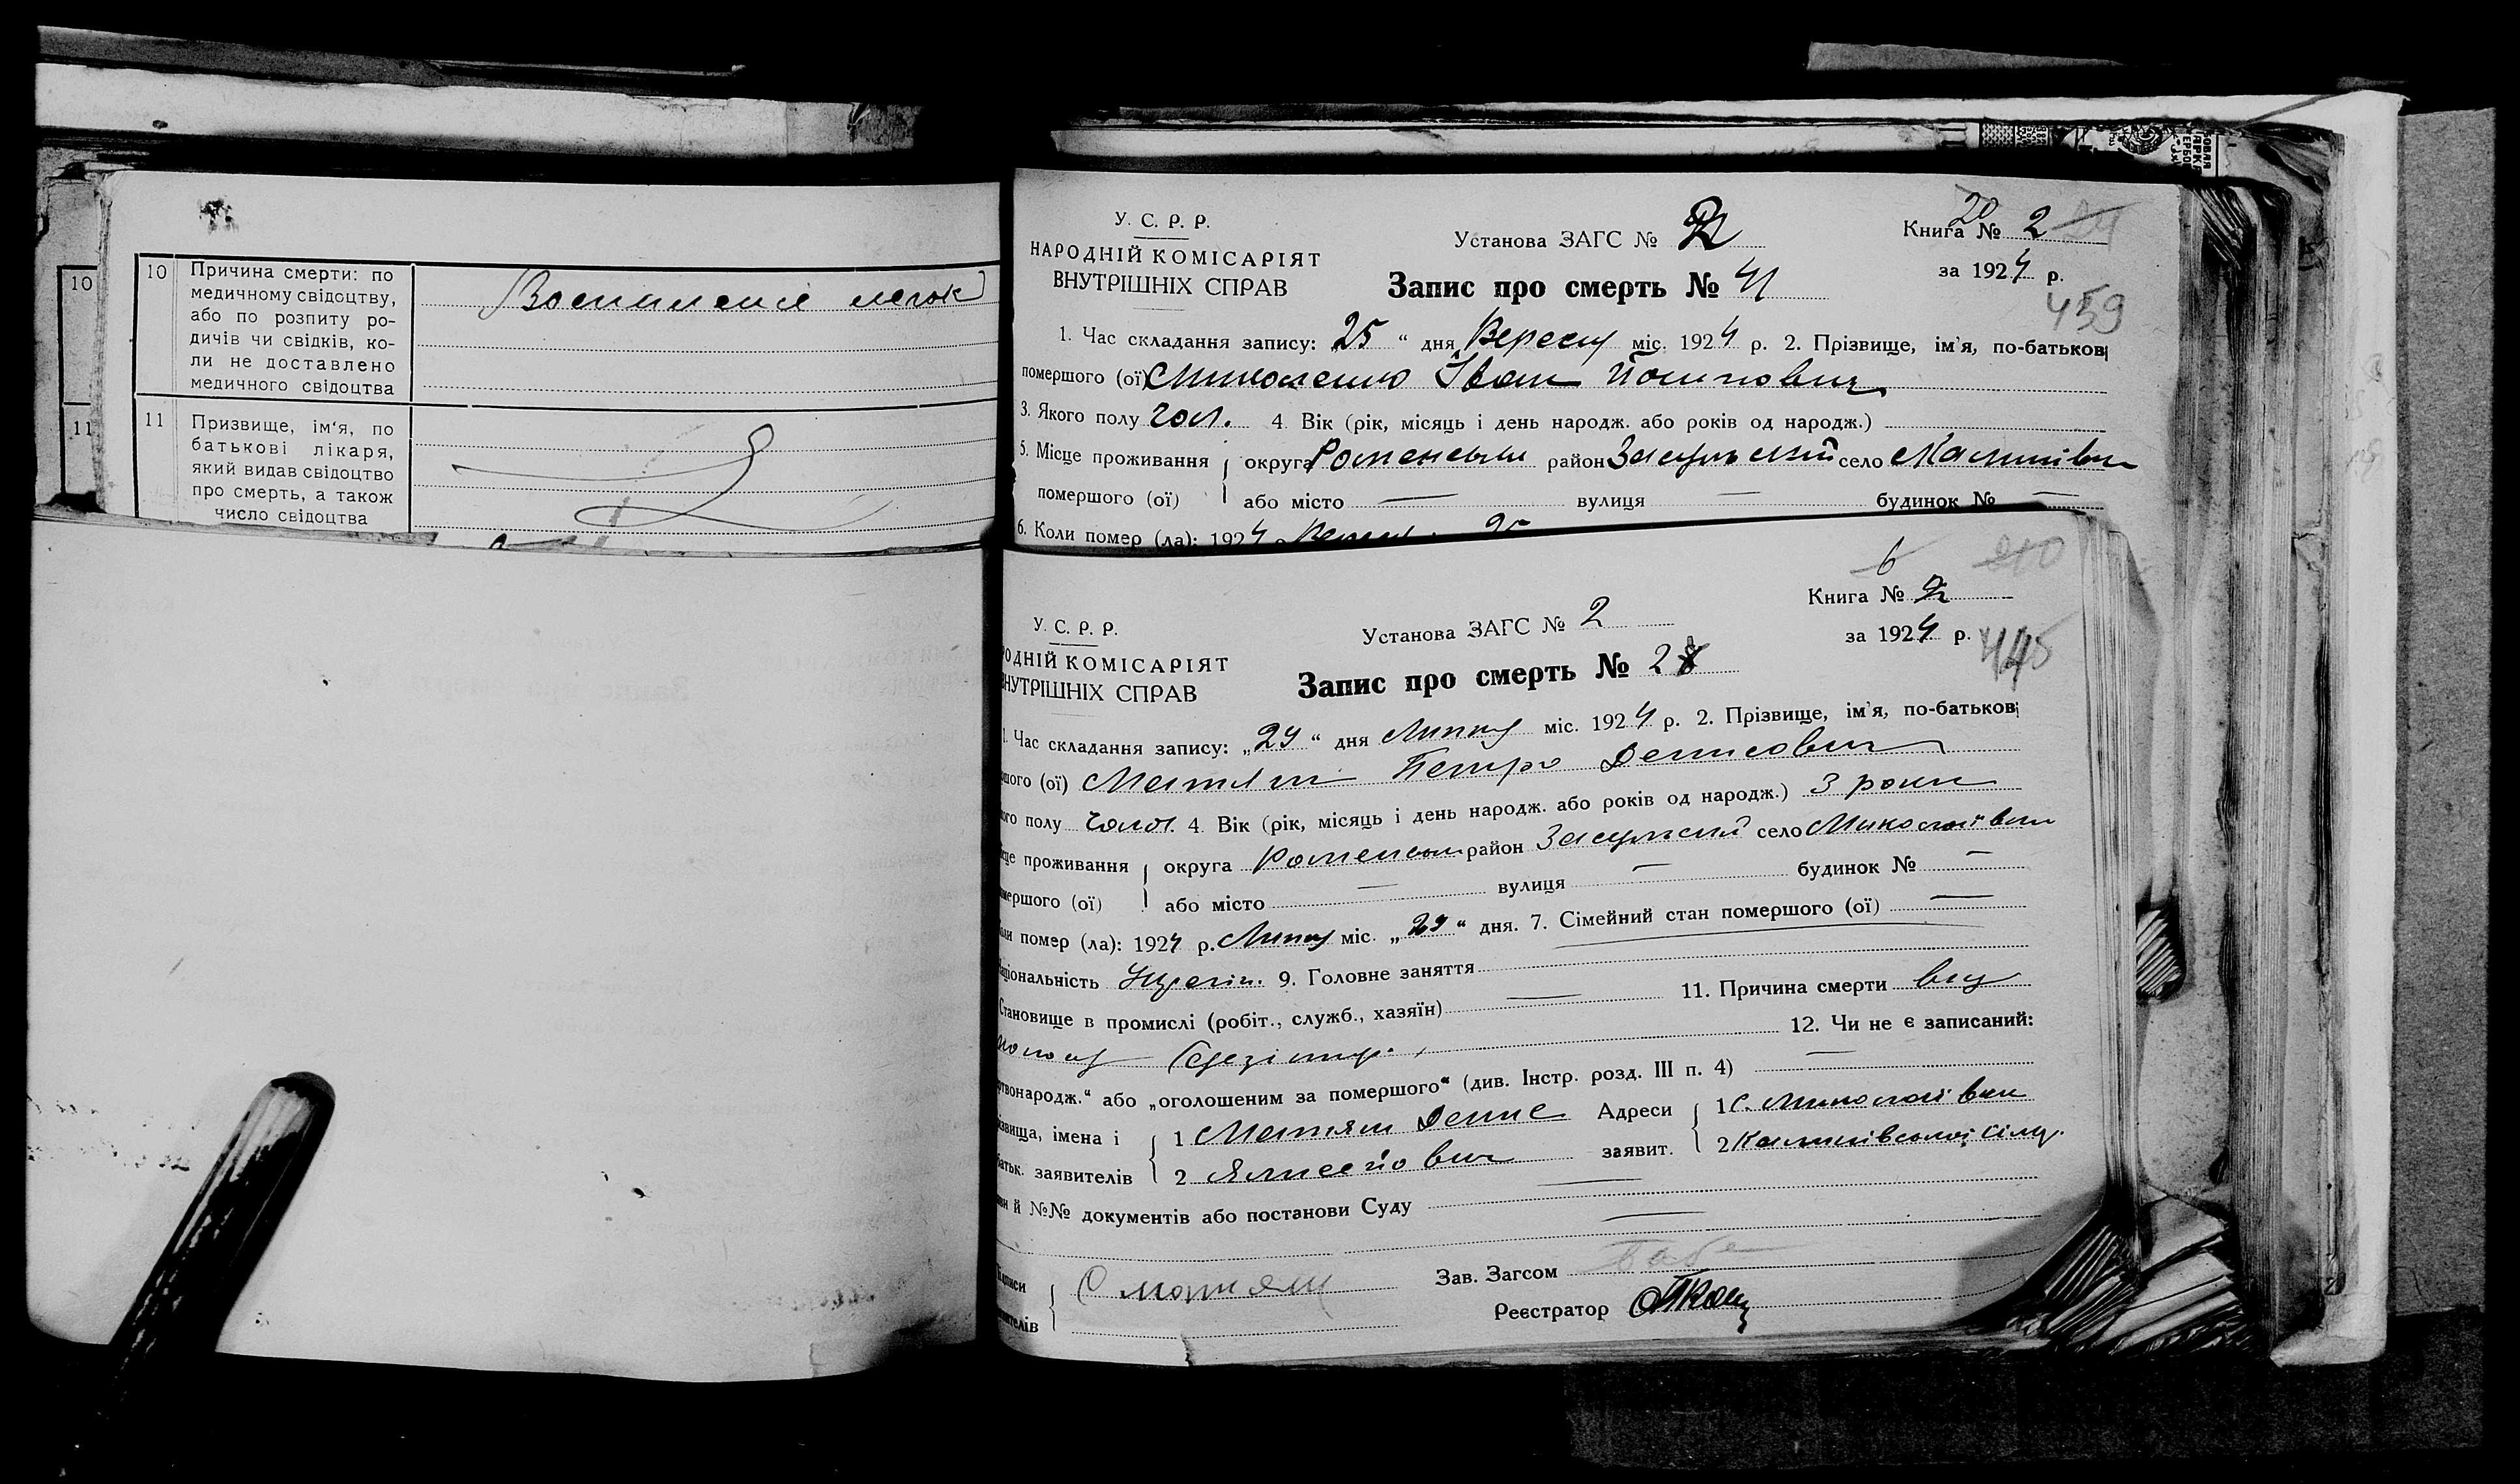 10
11
10 Причина смерти: по
медичному свідоцтву,
або по розпиту ро-
дичів чи свідків, ко-
ли не доставлено
медичного свідоцтва
Воспаление легок
11 Призвище, ім‘я, по
батькові лікаря,
який видав свідоцтво
про смерть, а також
число свідоцтва
У. С. Р. Р.
НАРОДНІЙ КОМІСАРІЯТ
ВНУТРІШНІХ СПРАВ
Установа ЗАГС № 2
Запис про смерть № 41
20
Книга № 2
за 1924 р.
459
1. Час складання запису: „25“ дня Вересня міс. 1924 р. 2. Прізвище, ім’я, по-батькові
помершого (ої) Миколенко Іван Йосипович
3. Якого полу чол. 4. Вік (рік, місяць і день народж. або років од народж.)
5. Місце проживання округа Роменська район Засульський село Калинівка
помершого (ої) або місто — вулиця — будинок № —
6. Коли помер (ла): 1924 р. 25
6
Книга № 2
за 1924 р.
445
У. С. Р. Р.
ОДНІЙ КОМІСАРІЯТ
НУТРІШНІХ СПРАВ
Установа ЗАГС № 2
Запис про смерть № 28
1. Час складання запису: „29“ дня Липня міс. 1924 р. 2. Прізвище, ім’я, по-батькові
шого (ої) Матяш Петро Денисович
го полу чолов. 4. Вік (рік, місяць і день народж. або років од народж.) 3 роки
це проживання округа Роменська район Засульский село Миколаївка
мершого (ої) або місто — вулиця — будинок № —
ли помер (ла): 1924 р. Липня міс. „29“ дня. 7. Сімейний стан помершого (ої) —
аціональність Україн. 9. Головне заняття
Становище в промислі (робіт., служб., хазяїн) — 11. Причина смерти від
12. Чи не є записаний:
ртвонародж.“ або „оголошеним за помершого“ (див. Інстр. розд. III п. 4) —
ізвища, імена і 1 Матяш Денис Адреси 1 с. Миколаївка
батьк. заявителів 2 заявит. 2 Калинівської сілр.
й №№ документів або постанови Суду —
—
Підписи Матяш Зав. Загсом
ителів Реєстратор